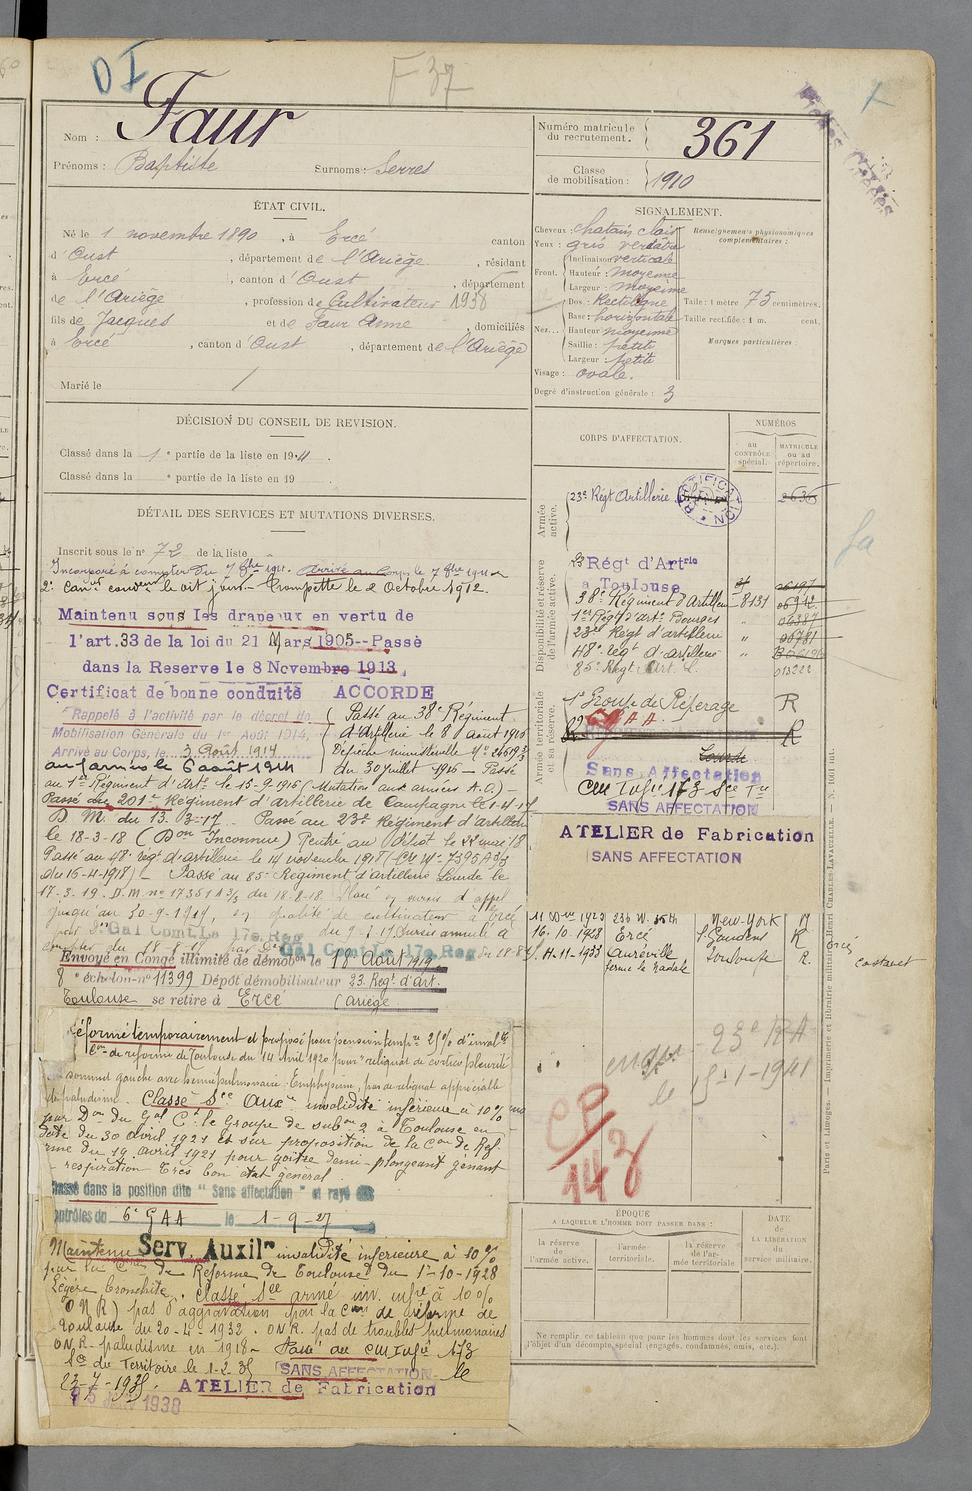 D I
F 37
Nom : Faur
Prénoms : Baptiste Surnoms : Serres
Numéro matricule du recrutement. 361
Classe de mobilisation : 1910
ÉTAT CIVIL.
Né le 1 novembre 1890, à Ercé canton
d'Oust, département de l'Ariège, résidant
à Ercé, canton d'Oust, département
de l'Ariège, profession de Cultivateur 1938
fils de Jacques et de Faur Anne, domiciliés
à Ercé, canton d'Oust, département de l'Ariège
Marié le /
SIGNALEMENT.
Cheveux : chatain clair
Yeux : gris verdâtre
Front. Inclinaison verticale
Hauteur : moyenne
Largeur : moyenne
Nez... Dos : Rectiligne
Base : horizontale
Hauteur moyenne
Saillie : petite
Largeur : petite
Visage : ovale.
Renseignements physionomiques complémentaires :
Taille : 1 mètre 75 centimètres.
Taille rectifiée : 1 m. cent.
Marques particulières :
Degré d'instruction générale : 3
DÉCISION DU CONSEIL DE REVISION.
Classé dans la 1e partie de la liste en 1911.
Classé dans la e partie de la liste en 19 .
DÉTAIL DES SERVICES ET MUTATIONS DIVERSES.
Inscrit sous le no 72 de la liste
Incorporé à compter du 7 8bre 1911. Arrivé au Corps le 7 8bre 1911
2e can. cond. le dit jour. Trompette le 2 Octobre 1912.
Maintenu sous les drapeaux en vertu de
l'art. 33 de la loi du 21 Mars 1905--Passé
dans la Reserve le 8 Novembre 1913.
Certificat de bonne conduite ACCORDE
Rappelé à l'activité par le décret de
Mobilisation Générale du 1er Août 1914,
Arrivé au Corps, le 3 Août 1914
aux armées le 6 août 1914
Passé au 38e Régiment
d'Artillerie le 8 août 1916
Dépêche ministérielle No 26619 3/3
du 30 juillet 1916 — Passé
au 1er Régiment d'Artie le 15-9-1916 (Mutation aux armées A.O.) —
Passé au 201e Régiment d'artillerie de Campagne le 1-4-17
D M du 13 3-17. Passé au 23e Régiment d'Artillerie
le 18-3-18 (Don Inconnue) Rentré au Dépôt le 22 mars 18
Passé au 48e régt d'artillerie le 14 novembre 1918 (Cre No 7395 A 3/3
du 16-4-1918) Passé au 85e Régiment d'artillerie Lourde le
17-3-19. D.M. no 17351 A 3/3 du 18-8-18. Placé en sursis d'appel
jusqu'au 30-9-1919, en qualité de cultivateur à Ercé
par Don Gal Comt La 17e Reg du 9-5-17 Sursis annulé à
compter du 18-8-18 par Don Gal Comt La 17e Reg
Envoyé en Congé illimité de démobon le 18 Août 1919
8e échelon-no 11399 Dépôt démobilisateur 23 Régt d'art.
Toulouse se retire à Ercé (Ariège
Réformé temporairement et proposé pour pension tempre 25% d'invalté
Con de réforme de Toulouse du 14 Avril 1920 pour "reliquat de cortico pleurite
sommet gauche avec hemi pulmonaire. Emphysème, pas de reliquat appréciable
de paludisme. Classé Sce Auxre invalidité inférieure à 10%
par Don du Gal Ct le Groupe de subon 2 à Toulouse en
date du 30 avril 1921 et sur proposition de la Con de Réf.
orme du 19 avril 1921 pour goitre demi-plongeant gênant
respiration très bon état général.
Classé dans la position dite "Sans affectation" et rayé des
contrôles du 6e GAA le 1-9-27
Maintenu Serv. Auxilre invalidité inférieure à 10%
par la Con de Réforme de Toulouse du 1-10-1928
Légère bronchite. Classé Sce armé inv. infre à 10%
ONR) pas d'aggravation par la Con de réforme de
Toulouse du 20-4-1932. ONR. pas de troubles pulmonaires
ONR paludisme en 1918 — Passé au CM Infie 173
Sce du Territoire le 1-2-35 SANS AFFECTATION le
23-7-1935. ATELIER de Fabrication
25 1938
CORPS D'AFFECTATION.
NUMÉROS
au contrôle spécial.
MATRICULE ou au répertoire.
Armée active.
23e Régt Artillerie 2636
RECTIFICATION
Disponibilité et réserve de l'armée active.
23 Régt d'Artrie
a Toulouse
38e Régiment d'Artillerie 8131 06912
1er Régt d'arte Bourges " 06387
23e Régt d'artillerie 06781
48e régt d'artillerie "
85e Régt Art. L. 013222
Armée territoriale et sa réserve.
1er Groupe de Repérage R
G A A.
Lourde
Sans Affectation
CM Infie 173 Sce Tre
SANS AFFECTATION
ATELIER de Fabrication
SANS AFFECTATION
11 1925 236 W. 55th New-York R
16-10-1928 Ercé St Gaudens R
11-11-1933 Auréville Toulouse R.
ferme le
Ercé castanet
23e RA
le 15-1-1941
CP
143
ÉPOQUE
A LAQUELLE L'HOMME DOIT PASSER DANS :
la réserve de l'armée active.
l'armée territoriale.
la réserve de l'armée territoriale
DATE DE LA LIBÉRATION du service militaire.
Ne remplir ce tableau que pour les hommes dont les services font
l'objet d'un décompte spécial (engagés, condamnés, omis, etc.).
Paris et Limoges. — Imprimerie et librairie militaires Henri CHARLES-LAVAUZELLE.